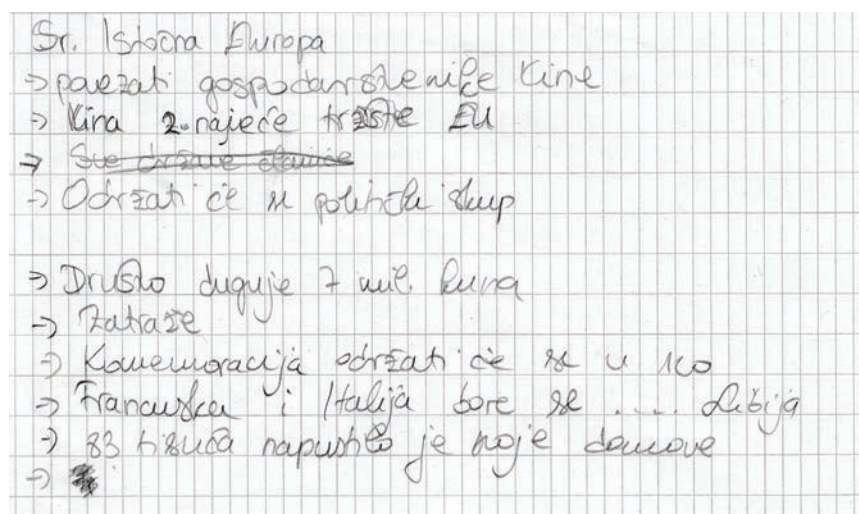 Sr. Istočna Europa
→ povezati gospodarstvenike Kine
→ Kina 2. najveće tržište EU
→ Sve države članice
→ Održati će se politički skup
→ Društvo duguje 7 mil. kuna
→ Zatraže
→ Komemoracija održati će se u
→ Francuska i Italija bore se .... Libija
→ 83 tisuća napustilo je svoje domove
→